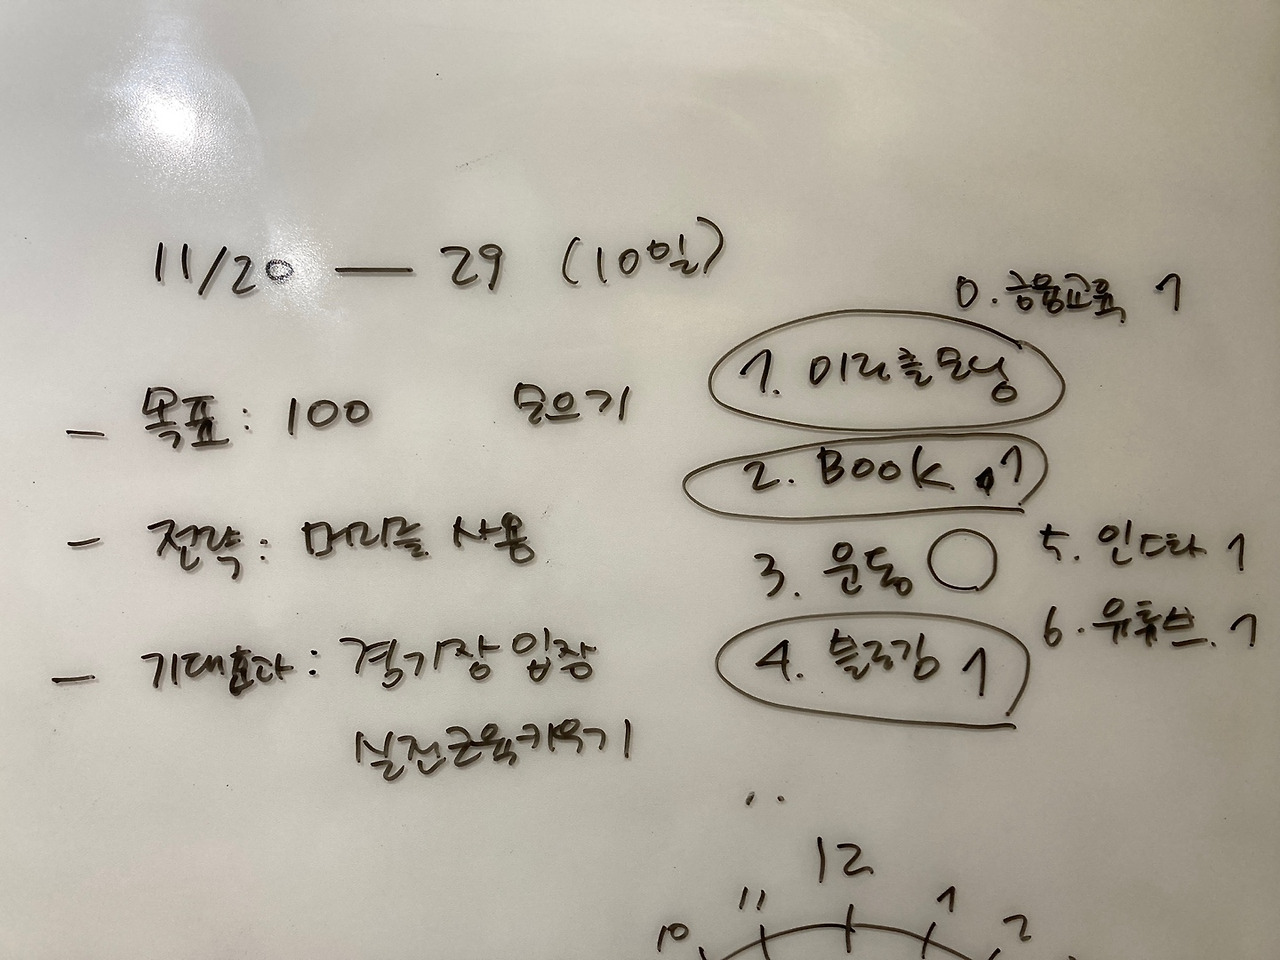 11/20 — 29 (10일)
- 목표: 100 모으기
- 전략: 머리를 사용
- 기대효과: 경기장 입장
실전근육키우기
0. 금융교육 1
1. 미라클모닝
2. Book 1
3. 운동 ○
4. 블로깅 1
5. 인스타 1
6. 유튜브. 1
12
11
1
10
2